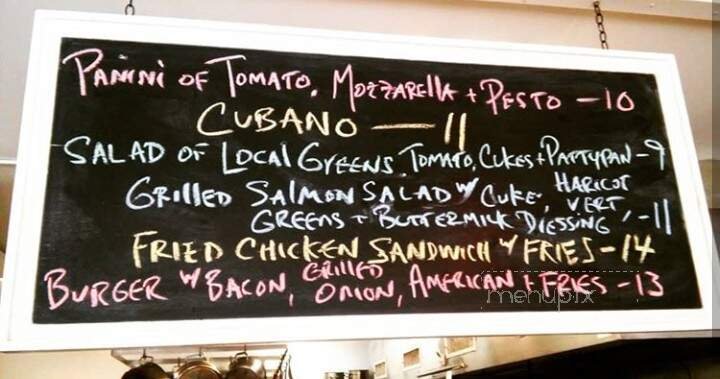 PANINI OF TOMATO, MOZZARELLA + PESTO - 10
CUBANO - 11
SALAD OF LOCAL GREENS, TOMATO, CUKES + PATTYPAN - 9
GRILLED SALMON SALAD W/ CUKE, HARICOT VERT,
GREENS + BUTTERMILK DRESSING - 11
FRIED CHICKEN SANDWICH W/ FRIES - 14
BURGER W/ BACON, GRILLED ONION, AMERICAN + FRIES - 13
menupix